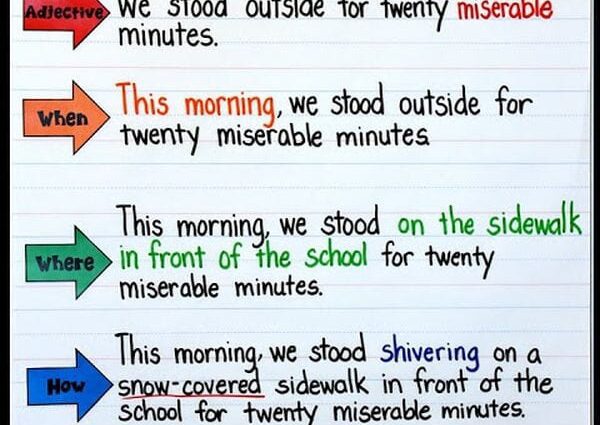 Adjective
We stood outside for twenty miserable
minutes.
When
This morning, we stood outside for
twenty miserable minutes
Where
This morning, we stood on the sidewalk
in front of the school for twenty
miserable minutes.
How
This morning, we stood shivering on a
snow-covered sidewalk in front of the
school for twenty miserable minutes.